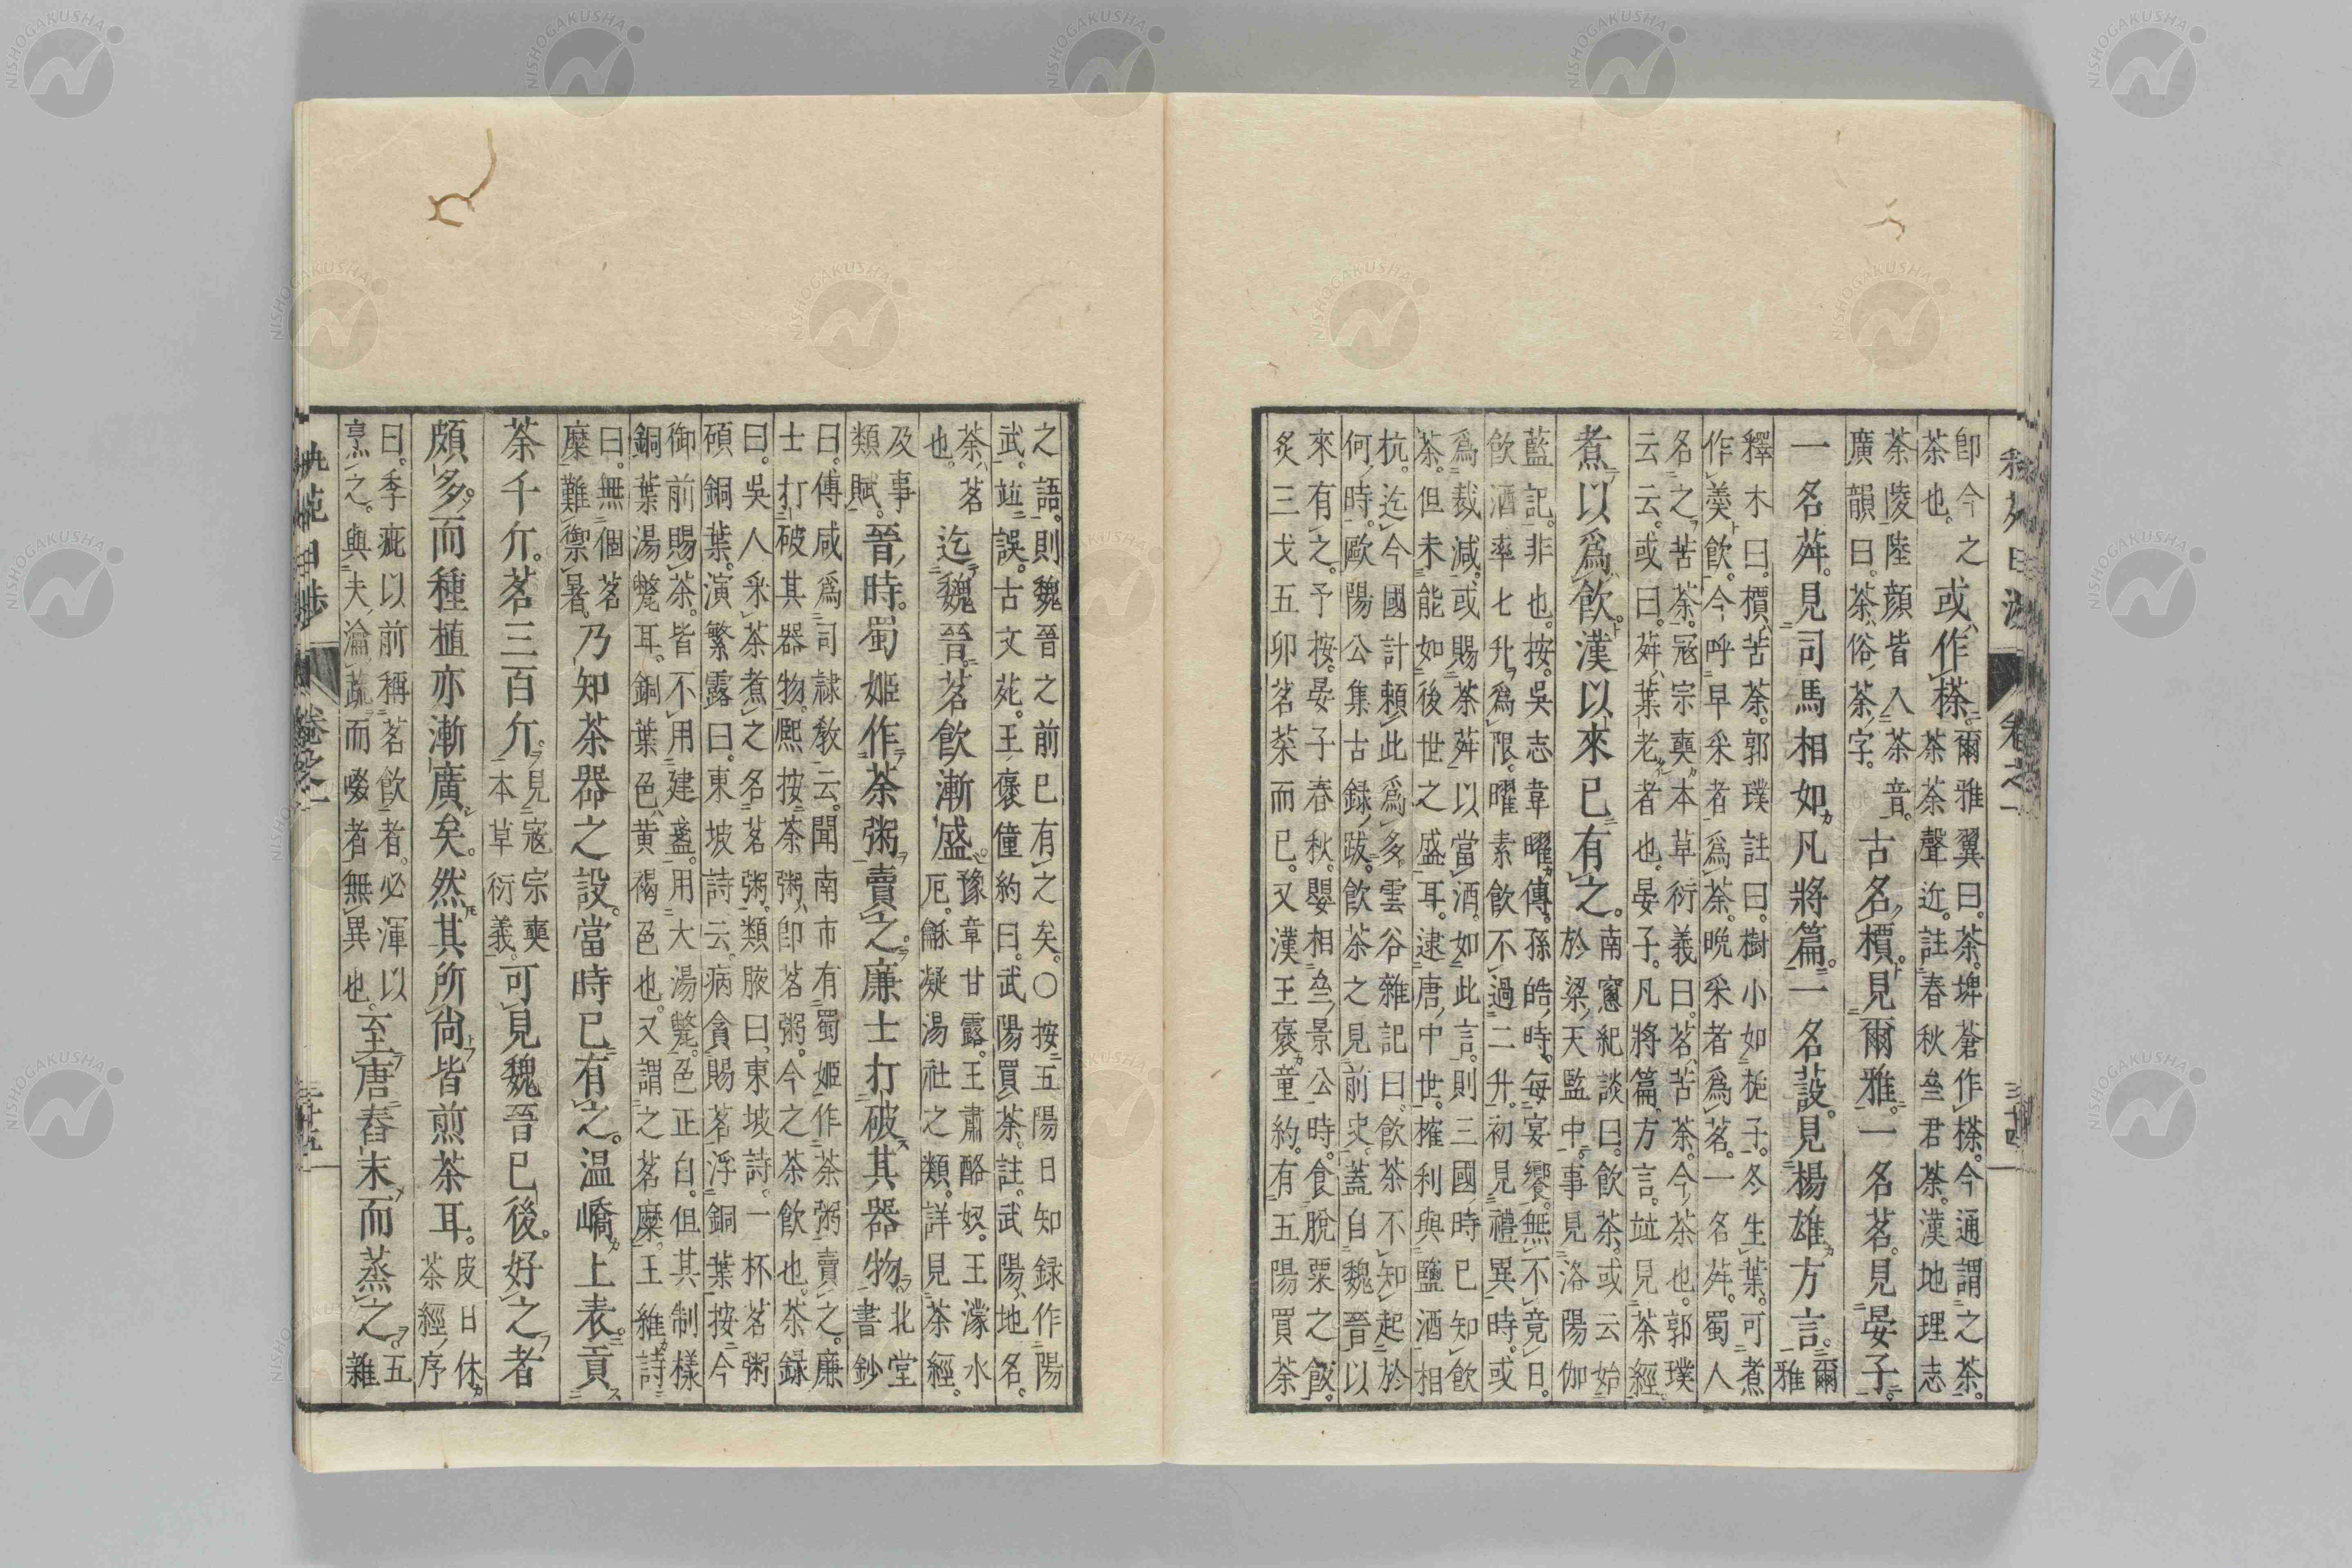 即今之茶也。或作𣘻。爾雅翼曰。茶。埤蒼作𣘻。今通謂之茶。茶荼聲近。註春秋亝君荼。漢地理志
荼陵陸顔皆入茶音。廣韻曰。荼俗茶字。古名檟。見爾雅。一名茗。見晏子。
一名荈。見司馬相如凡將篇。一名蔎。見楊雄方言。爾雅
釋木曰。檟苦荼。郭璞註曰。樹小如梔子。冬生葉。可煮作羹飲。今呼早采者爲茶。晩采者爲茗。一名荈。蜀人
名之苦荼。冦宗奭本草衍義曰。茗苦荼。今茶也。郭璞云云。或曰。荈葉老者也。晏子。凡將篇。方言。竝見茶經
煮以爲飲。漢以來已有之。南窻紀談曰。飲茶。或云始於梁天監中。事見洛陽伽
藍記。非也。按。吳志韋曜傳。孫皓時。每宴饗。無不竟日。飲酒率七升爲限。曜素飲不過二升。初見禮異時。或
爲裁減。或賜茶荈以當酒。如此言。則三國時已知飲茶。但未能如後世之盛耳。逮唐中世。榷利與鹽酒相
杭。迄今國計頼此爲多。雲谷雜記曰。飲茶不知起於何時。歐陽公集古録跋。飲茶之見前史。蓋自魏晉以
來有之。予按。晏子春秋。嬰相亝景公時。食脫粟之飯。炙三戈五卯茗茶而已。又漢王褒童約。有五陽買茶
之語。則魏晉之前已有之矣。〇按五陽日知録作陽武。竝誤。古文苑。王褒僮約曰。武陽買茶。註。武陽地名。
茶茗也。迄魏晉。茗飲漸盛。豫章甘露。王肅酪奴。王濛水厄。龢凝湯社之類。詳見茶經。
及事類賦。晉時。蜀姬作茶粥賣之。廉士打破其器物。北堂書鈔
曰。傅咸爲司隷敎云。聞南市有蜀姬作茶粥賣之。廉士打破其器物。熈按茶粥卽茗粥。今之茶飲也。茶録
曰。吳人采茶煮之名茗粥。類腋曰。東坡詩。一杯茗粥碩銅葉。演繁露曰。東坡詩云。病貪賜茗浮銅葉。按今
御前賜茶。皆不用建盞。用大湯氅。色正白。但其制樣銅葉湯氅耳。銅葉色黄褐色也。又謂之茗糜。王維詩
曰。無個茗糜難禦暑。乃知茶器之設。當時已有之。温嶠上表。貢
茶千斤。茗三百斤。見冦宗奭本草衍義。可見魏晉已後。好之者
頗多。而種植亦漸廣矣。然其所尙皆煎茶耳。皮日休茶經序
曰。季疵以前稱茗飲者。必渾以烹之。與夫瀹蔬而啜者無異也。至唐春末而蒸之。五雜
卷之一